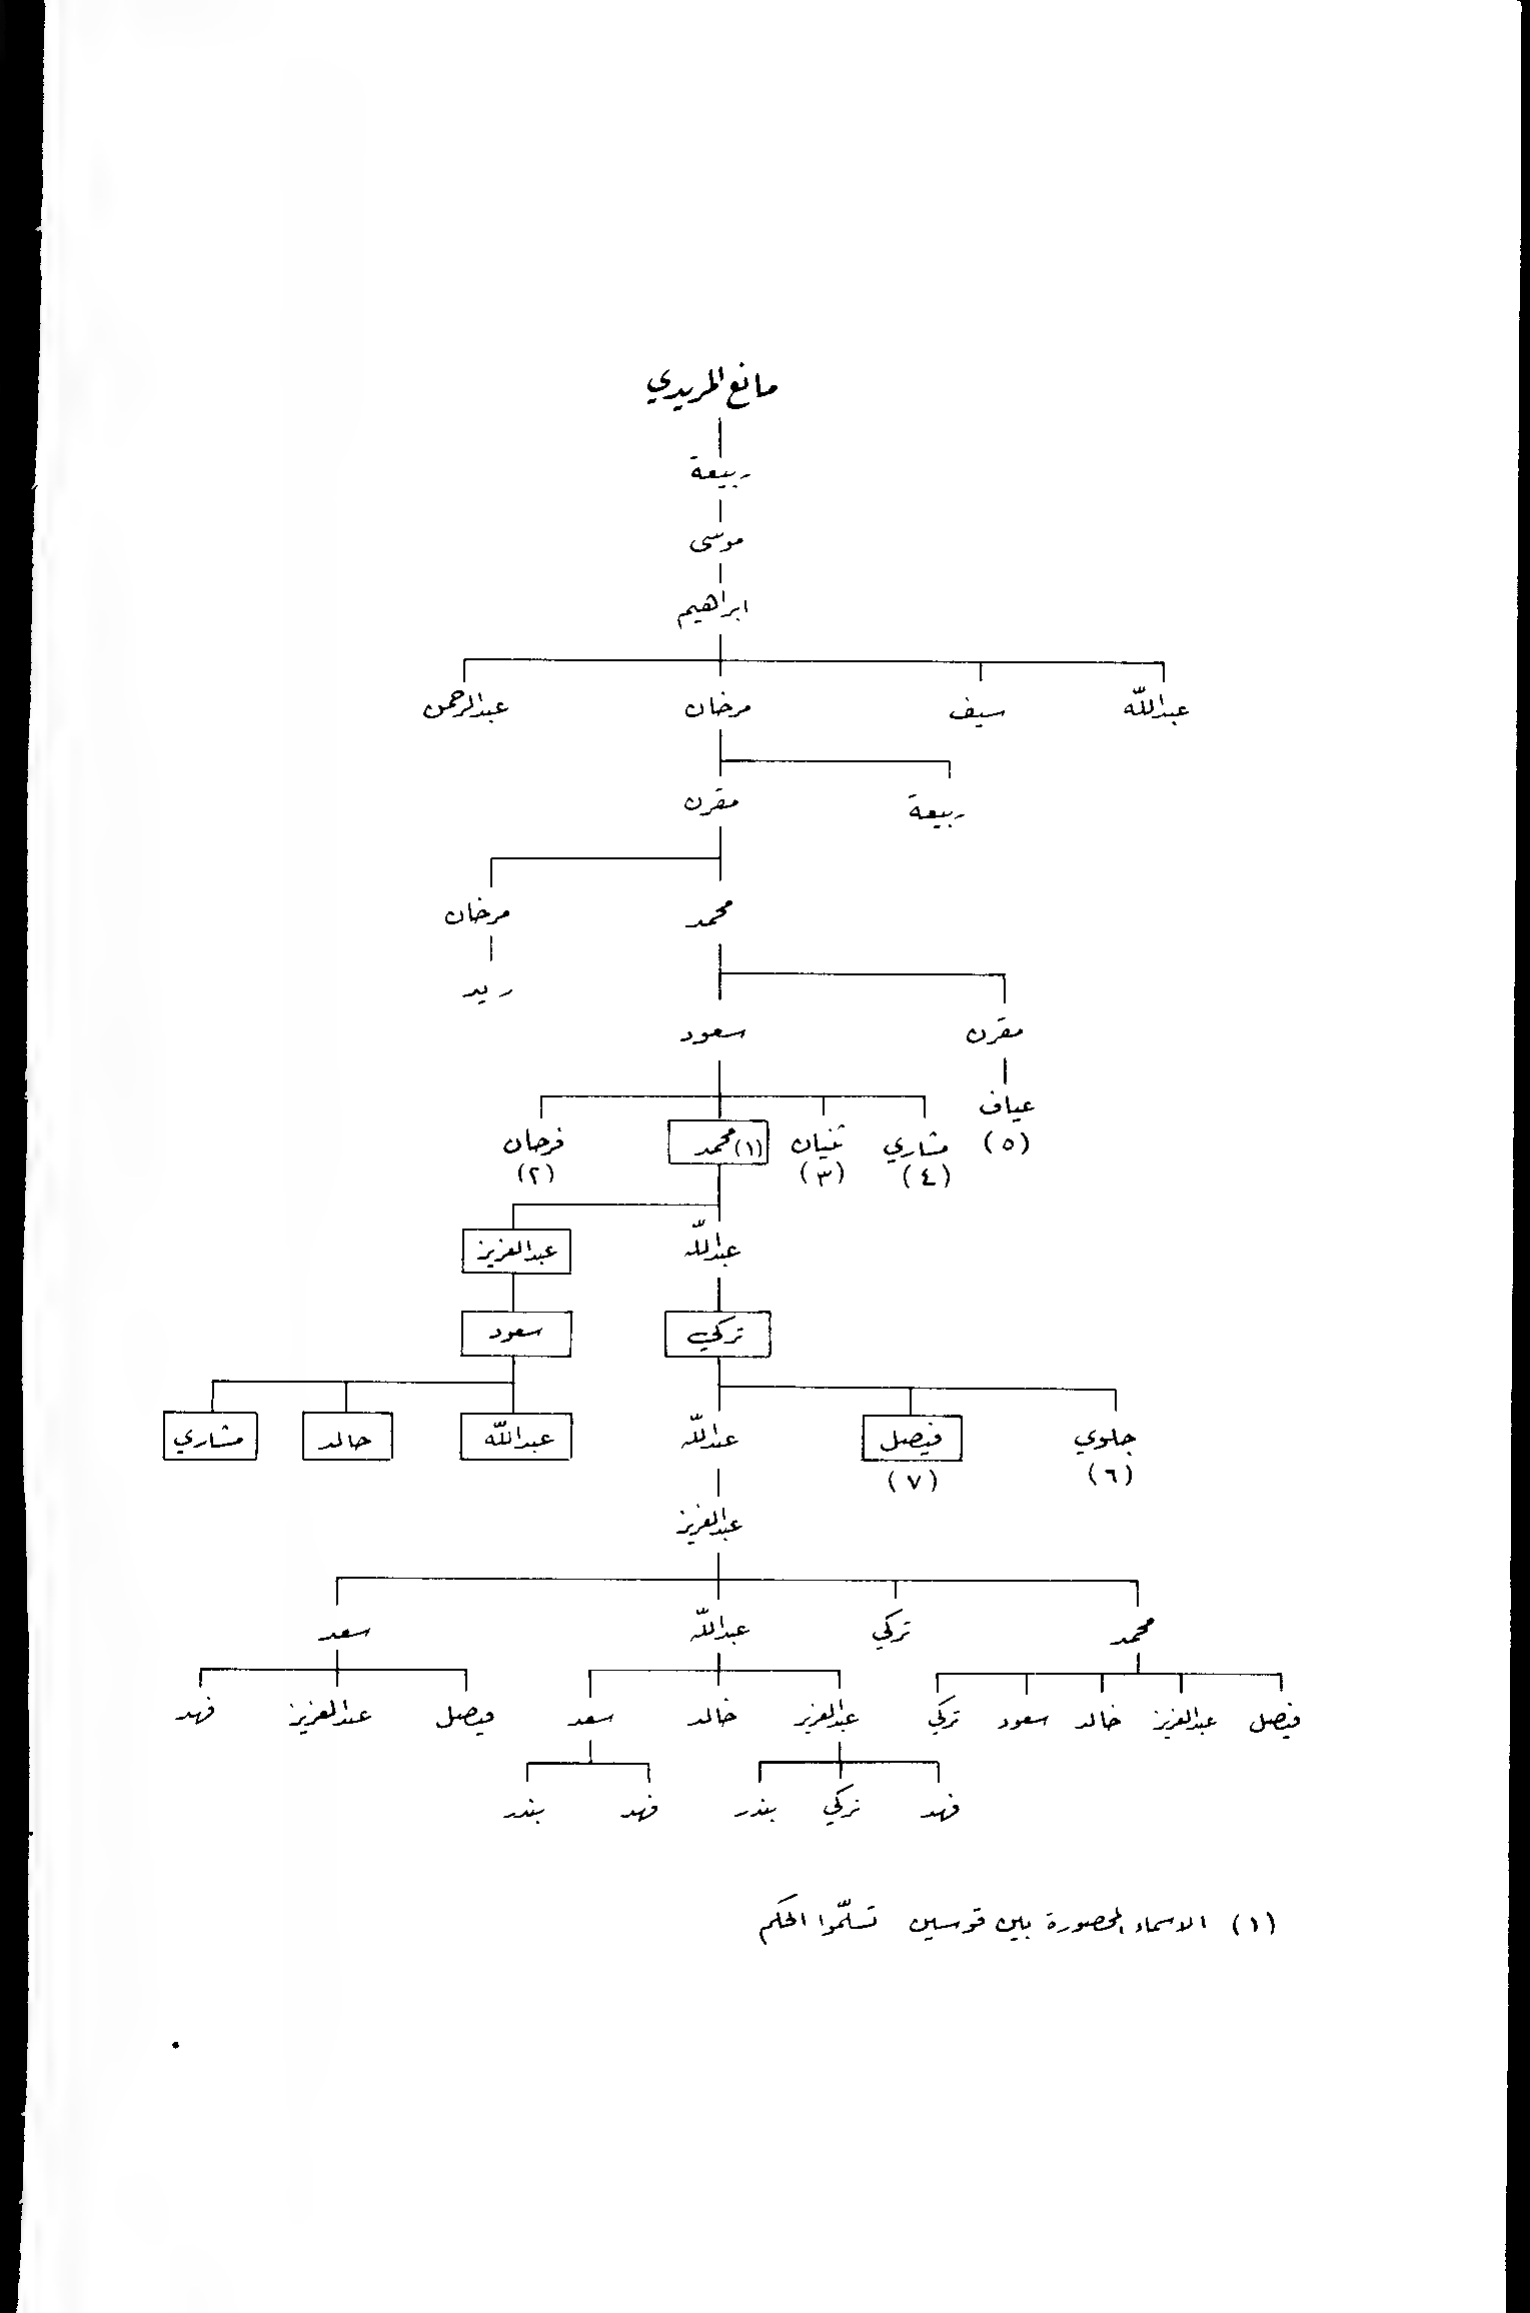 مانع المريدي
ربيعة
موسى
ابراهيم
عبدالله سيف مرخان عبدالرحمن
ربيعة مقرن
محمد مرخان
ريد
مقرن سعود
عياف
(٥)
مشاري ثنيان (١) محمد فرحان
(٤) (٣) (٢)
عبدالله عبدالعزيز
تركي سعود
جلوي فيصل عبدالله عبدالله خالد مشاري
(٦) (٧)
عبدالعزيز
محمد تركي عبدالله سعد
فيصل عبدالعزيز خالد سعود تركي عبدالعزيز خالد سعد فيصل عبدالعزيز فهد
فهد تركي بندر فهد بندر
(١) الاسماء المحصورة بين قوسين تسلّموا الحكم